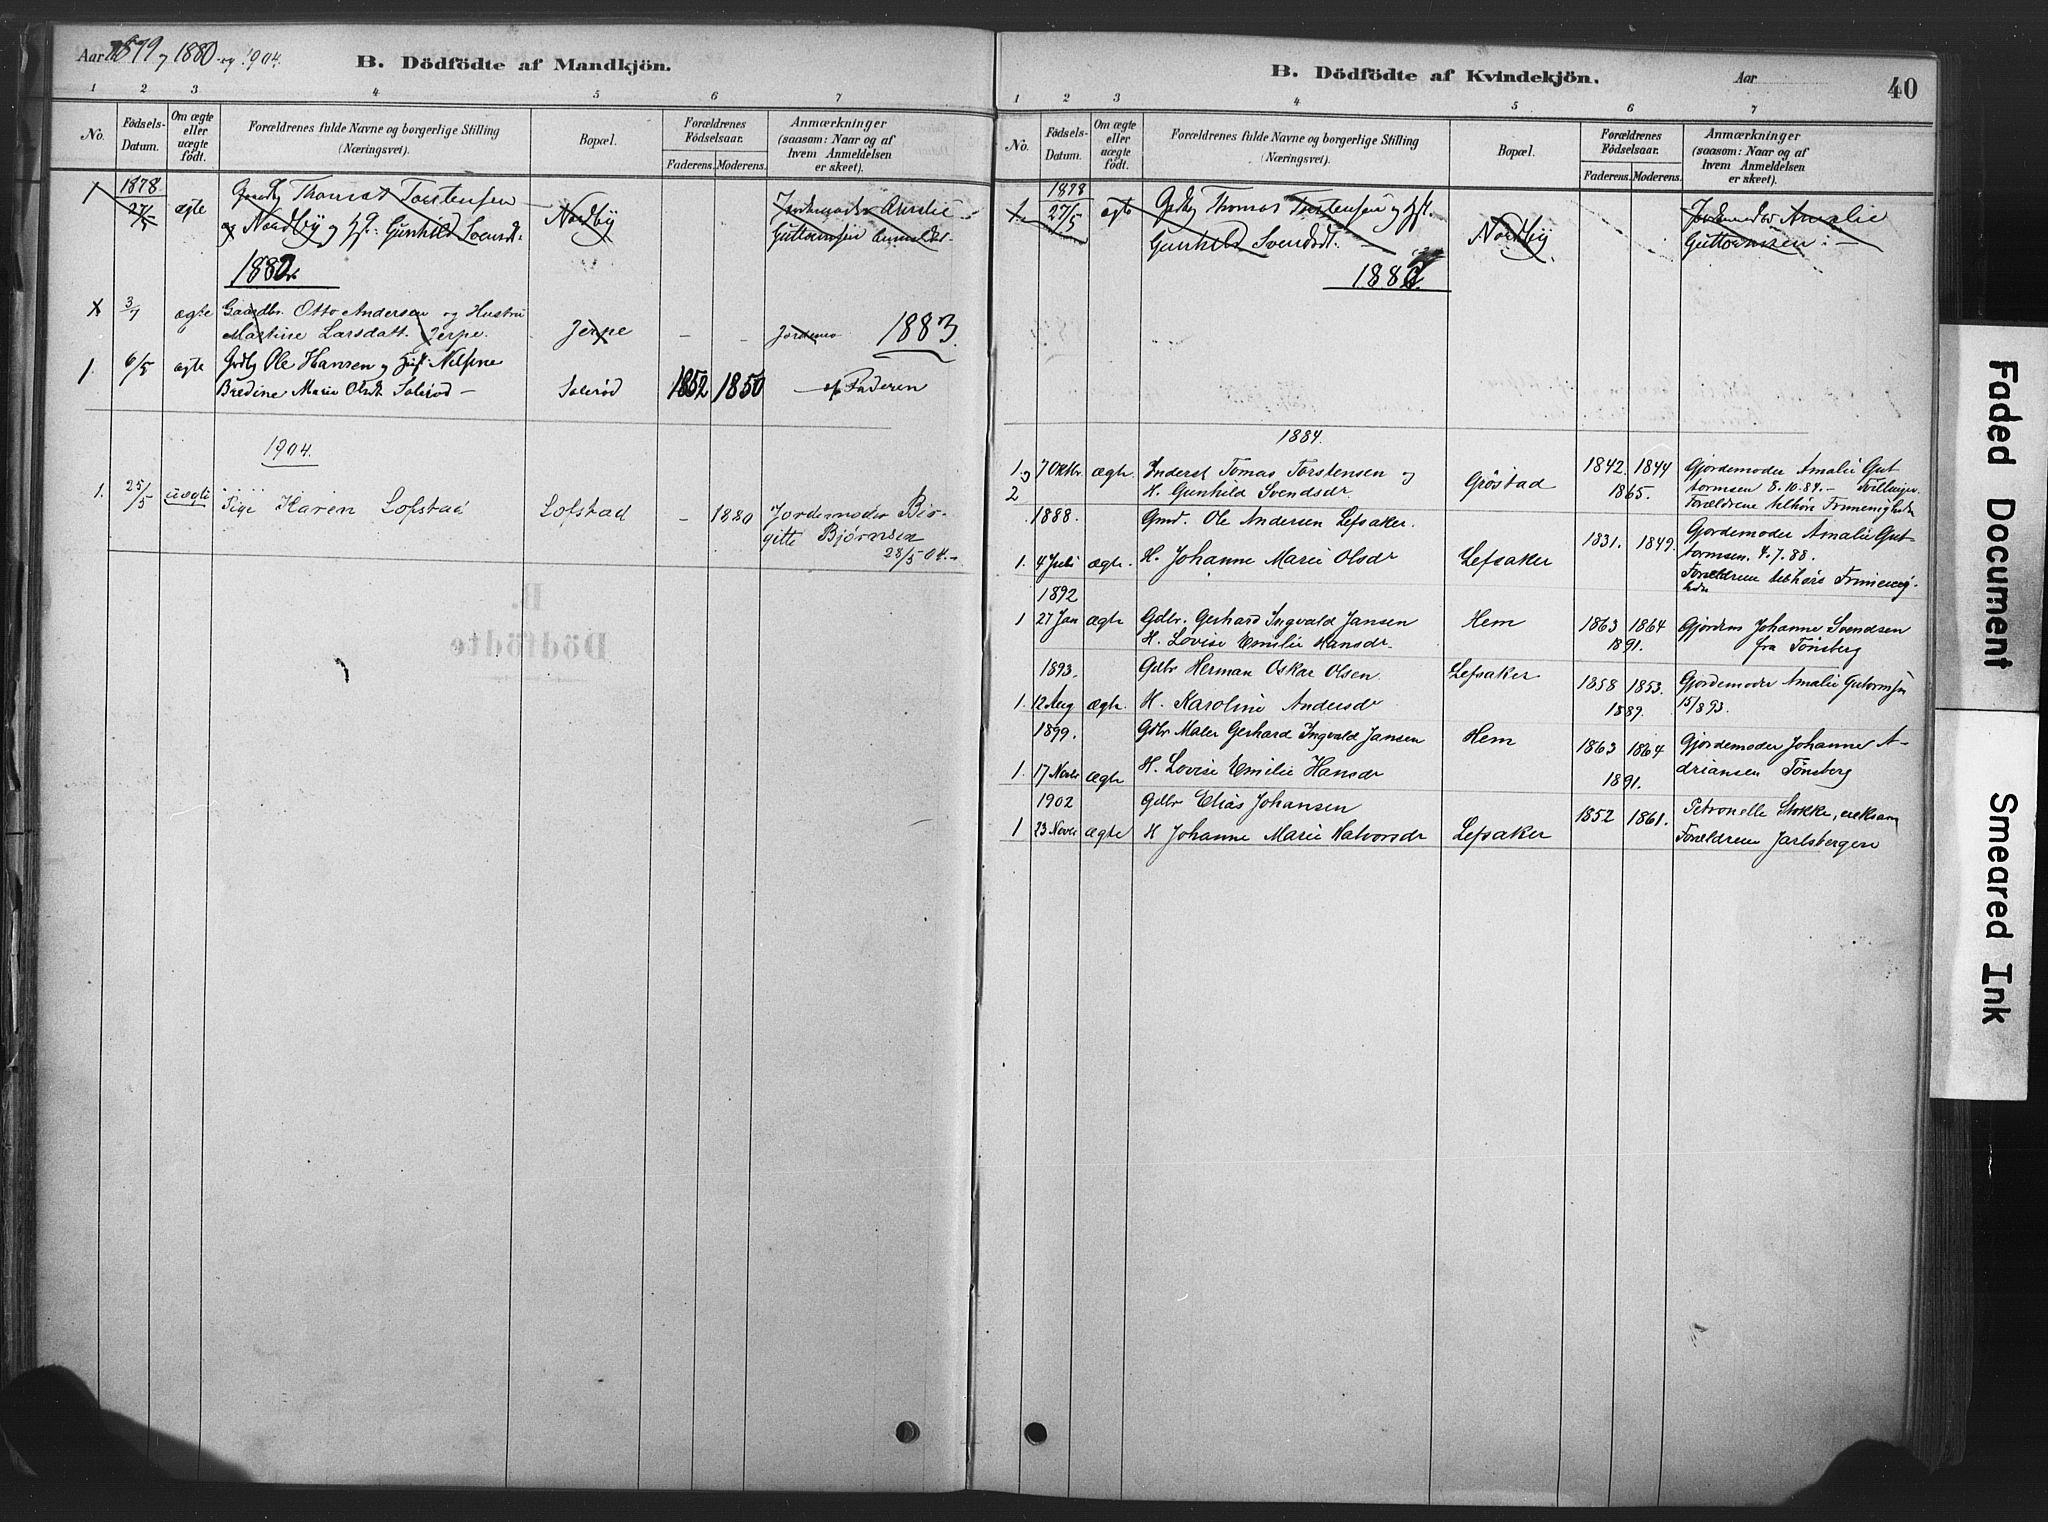 Aar 1879 og 1880 og 1904.
B. Dödfödte af Mandkjön.
1 2 3 4 5 6 7
No.
Födsels-
Datum.
Om ægte
eller
uægte
født.
Forældrenes fulde Navne og borgerlige Stilling
(Næringsvei).
Bopæl.
Forældrenes
Födselsaar.
Faderens. Moderens.
Anmærkninger
(saasom: Naar og af
hvem Anmeldelsen
er skeet).
1 1878 Gmdbg Thomas Torstensen
27/5 ægte Nordby og Hst. Gunhild Svensdt. Nordby
Guttormsen
1882
3/7 ægte Gaardbr. Otto Andersen og Hustru
Martine Larsdatt. Jerpe. Jerpe - - Jordemo 1883.
1. 6/5 ægte Grdbg Ole Hansen og Hst. Nilsine
Bredine Marie Olsdt Solerød - Solerød 1852 1850 af Faderen
1904.
1. 25/5 uægte Pige Karen Lofstad Lofstad - 1880 Jordemoder Bir-
gitte Bjørnsen
28/5 04.-
B.
Dödfödte
B. Dödfödte af Kvindekjön.
Aar
40
1 2 3 4 5 6 7
No.
Födsels-
Datum.
Om ægte
eller
uægte
födt.
Forældrenes fulde Navne og borgerlige Stilling
(Næringsvei).
Bopæl.
Forældrenes
Födselsaar.
Faderens. Moderens.
Anmærkninger
(saasom: Naar og af
hvem Anmeldelsen
er skeet).
1. 1878 Thomas Torstensen og Hst. Jordemoder Amalie
27/5 ægte Gunhild Svendsdt. - Nordby Guttormsen: -
1882
1884.
1 og 7 Oktbr. ægte Inderst Tomas Torstensen og 1842. 1844 Gjordemoder Amalie Gut
2 H. Gunhild Svendsdr. Grøstad 1865. tormsen 8.10.84. - Tvillinger.
Forældrene tilhøre Frimenigheden
1888. Gmd. Ole Andersen Lefsaker. 1831. 1849. Gjordemoder Amalie Gut
1. 4 Juli ægte. H. Johanne Marie Olsdr Lefsaker tormsen. 4.7.88.
Forældrene tilhøre Frimenig-
heden
1892
1 27 Jan ægte Gdbr. Gerhard Ingvald Jansen Hem 1863 1864 Gjordem Johanne Svendsen
H. Lovise Emilie Hansdr. 1891. fra Tönsberg
1893. Gdbr Herman Oskar Olsen. Lefsaker 1858 1853. Gjordemoder Amalie Gutormsen
1. 12 Aug ægte. H. Karoline Andersdr 1889. 15/8 93.
1899. Gdbr Maler Gerhard Ingvald Jansen Hem 1863 1864 Gjordemoder Johanne A-
1. 17 Novbr ægte H. Lovise Emilie Hansdr 1891. driansen Tönsberg
1902 Gdbr Elias Johansen 1852 1861. Petronelle Stokke, ereksam
1 23 Novbr ægte H Johanne Marie Halvorsdr Lefsaker Forældrene Jarlsbergere
Faded Document
Smeared Ink